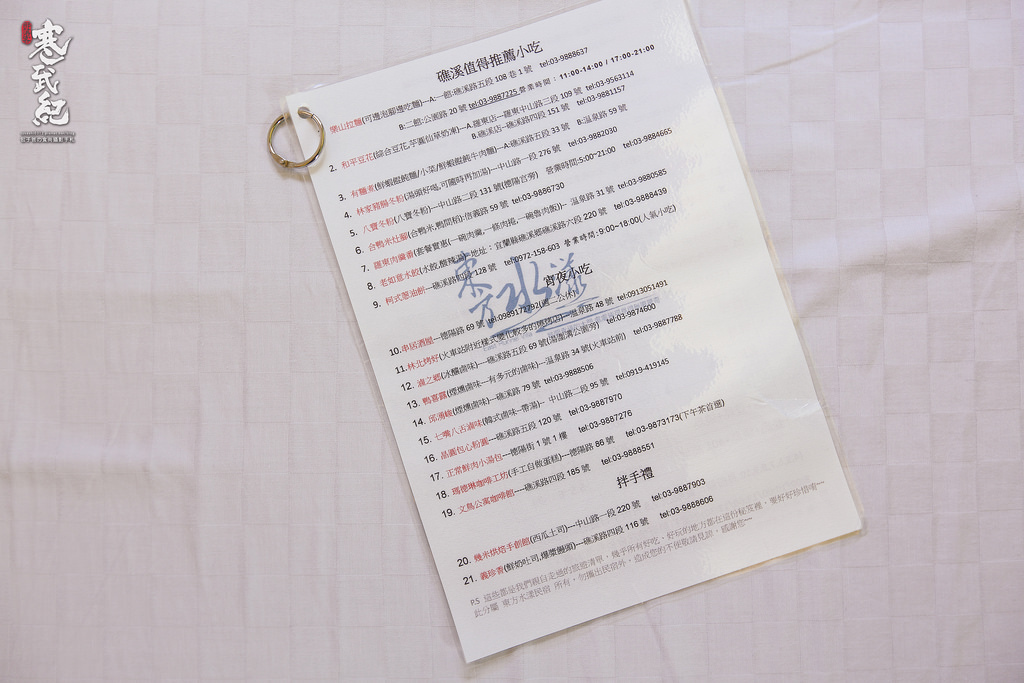 寒武紀
礁溪值得推薦小吃
樂山拉麵(可邊泡腳邊吃麵)---A:一館:礁溪路五段 108 巷 1 號 tel:03-9888637
B:二館:公園路 20 號 tel:03-9887225 營業時間：11:00-14:00 / 17:00-21:00
2. 和平豆花(綜合豆花.芋圓仙草奶凍)---A.羅東店--羅東中山路三段 109 號 tel:03-9563114
B.礁溪店--礁溪路四段 151 號 tel:03-9881157
3. 有麵煮(鮮蝦餛飩麵/小菜/鮮蝦餛飩牛肉麵)---A:礁溪路五段 33 號 B:溫泉路 59 號
4. 林家豬腸冬粉(湯頭好喝.可隨時再加湯)---中山路一段 276 號 tel:03-9882030
5. 八寶冬粉(八寶冬粉)---中山路二段 131 號(德陽宮旁) 營業時間:5:00~21:00 tel:03-9884665
6. 合鴨米灶腳(合鴨米,鴨間稻):信義路 59 號 tel:03-9886730
7. 羅東肉羹番(套餐實惠(一碗肉羹,一條肉捲,一碗魯肉飯))-- 溫泉路 31 號 tel:03-9880585
8. 老如意水餃(水餃,酸辣湯)--地址：宜蘭縣礁溪鄉礁溪路六段 220 號 tel:03-9888439
9. 柯式蔥油餅---礁溪路四段 128 號 tel:0972-158-603 營業時間:9:00~18:00(人氣小吃)
東方水漾
宵夜小吃
10.串居酒屋---德陽路 69 號 tel:0989172792(週二公休)
11.林北烤好(火車站附近樣式變化較多的燒烤店)---溫泉路 48 號 tel:0913051491
12. 滷之鄉(冰釀滷味)---礁溪路五段 69 號(湯圍溝公園旁) tel:03-9874600
13. 鴨喜露(煙燻滷味---有多元的滷味)---溫泉路 34 號(火車站前) tel:03-9887788
14. 邱湧峻(煙燻滷味)---礁溪路 79 號 tel:03-9888506
15. 七嘴八舌滷味(韓式滷味--帶湯)-- 中山路二段 95 號 tel:0919-419145
16. 晶圓包心粉圓---礁溪路五段 120 號 tel:03-9887970
17. 正常鮮肉小湯包---德陽街 1 號 1 樓 tel:03-9887276
18. 瑪德琳咖啡工坊(手工自做蛋糕)---德陽路 86 號 tel:03-9873173(下午茶首選)
19. 文鳥公寓咖啡館----礁溪路四段 185 號 tel:03-9888551
拌手禮
20. 幾米烘焙手創館(西瓜土司)---中山路一段 220 號 tel:03-9887903
21. 義珍香(鮮奶吐司,爆漿饅頭)---礁溪路四段 116 號 tel:03-9888606
P.S 這些都是我們親自走過的旅遊清單，幾乎所有好吃、好玩的地方都在這份秘笈裡，要好好珍惜唷~~~
此分屬 東方水漾民宿 所有，勿攜出民宿外，造成您的不便敬請見諒，感謝您~~~